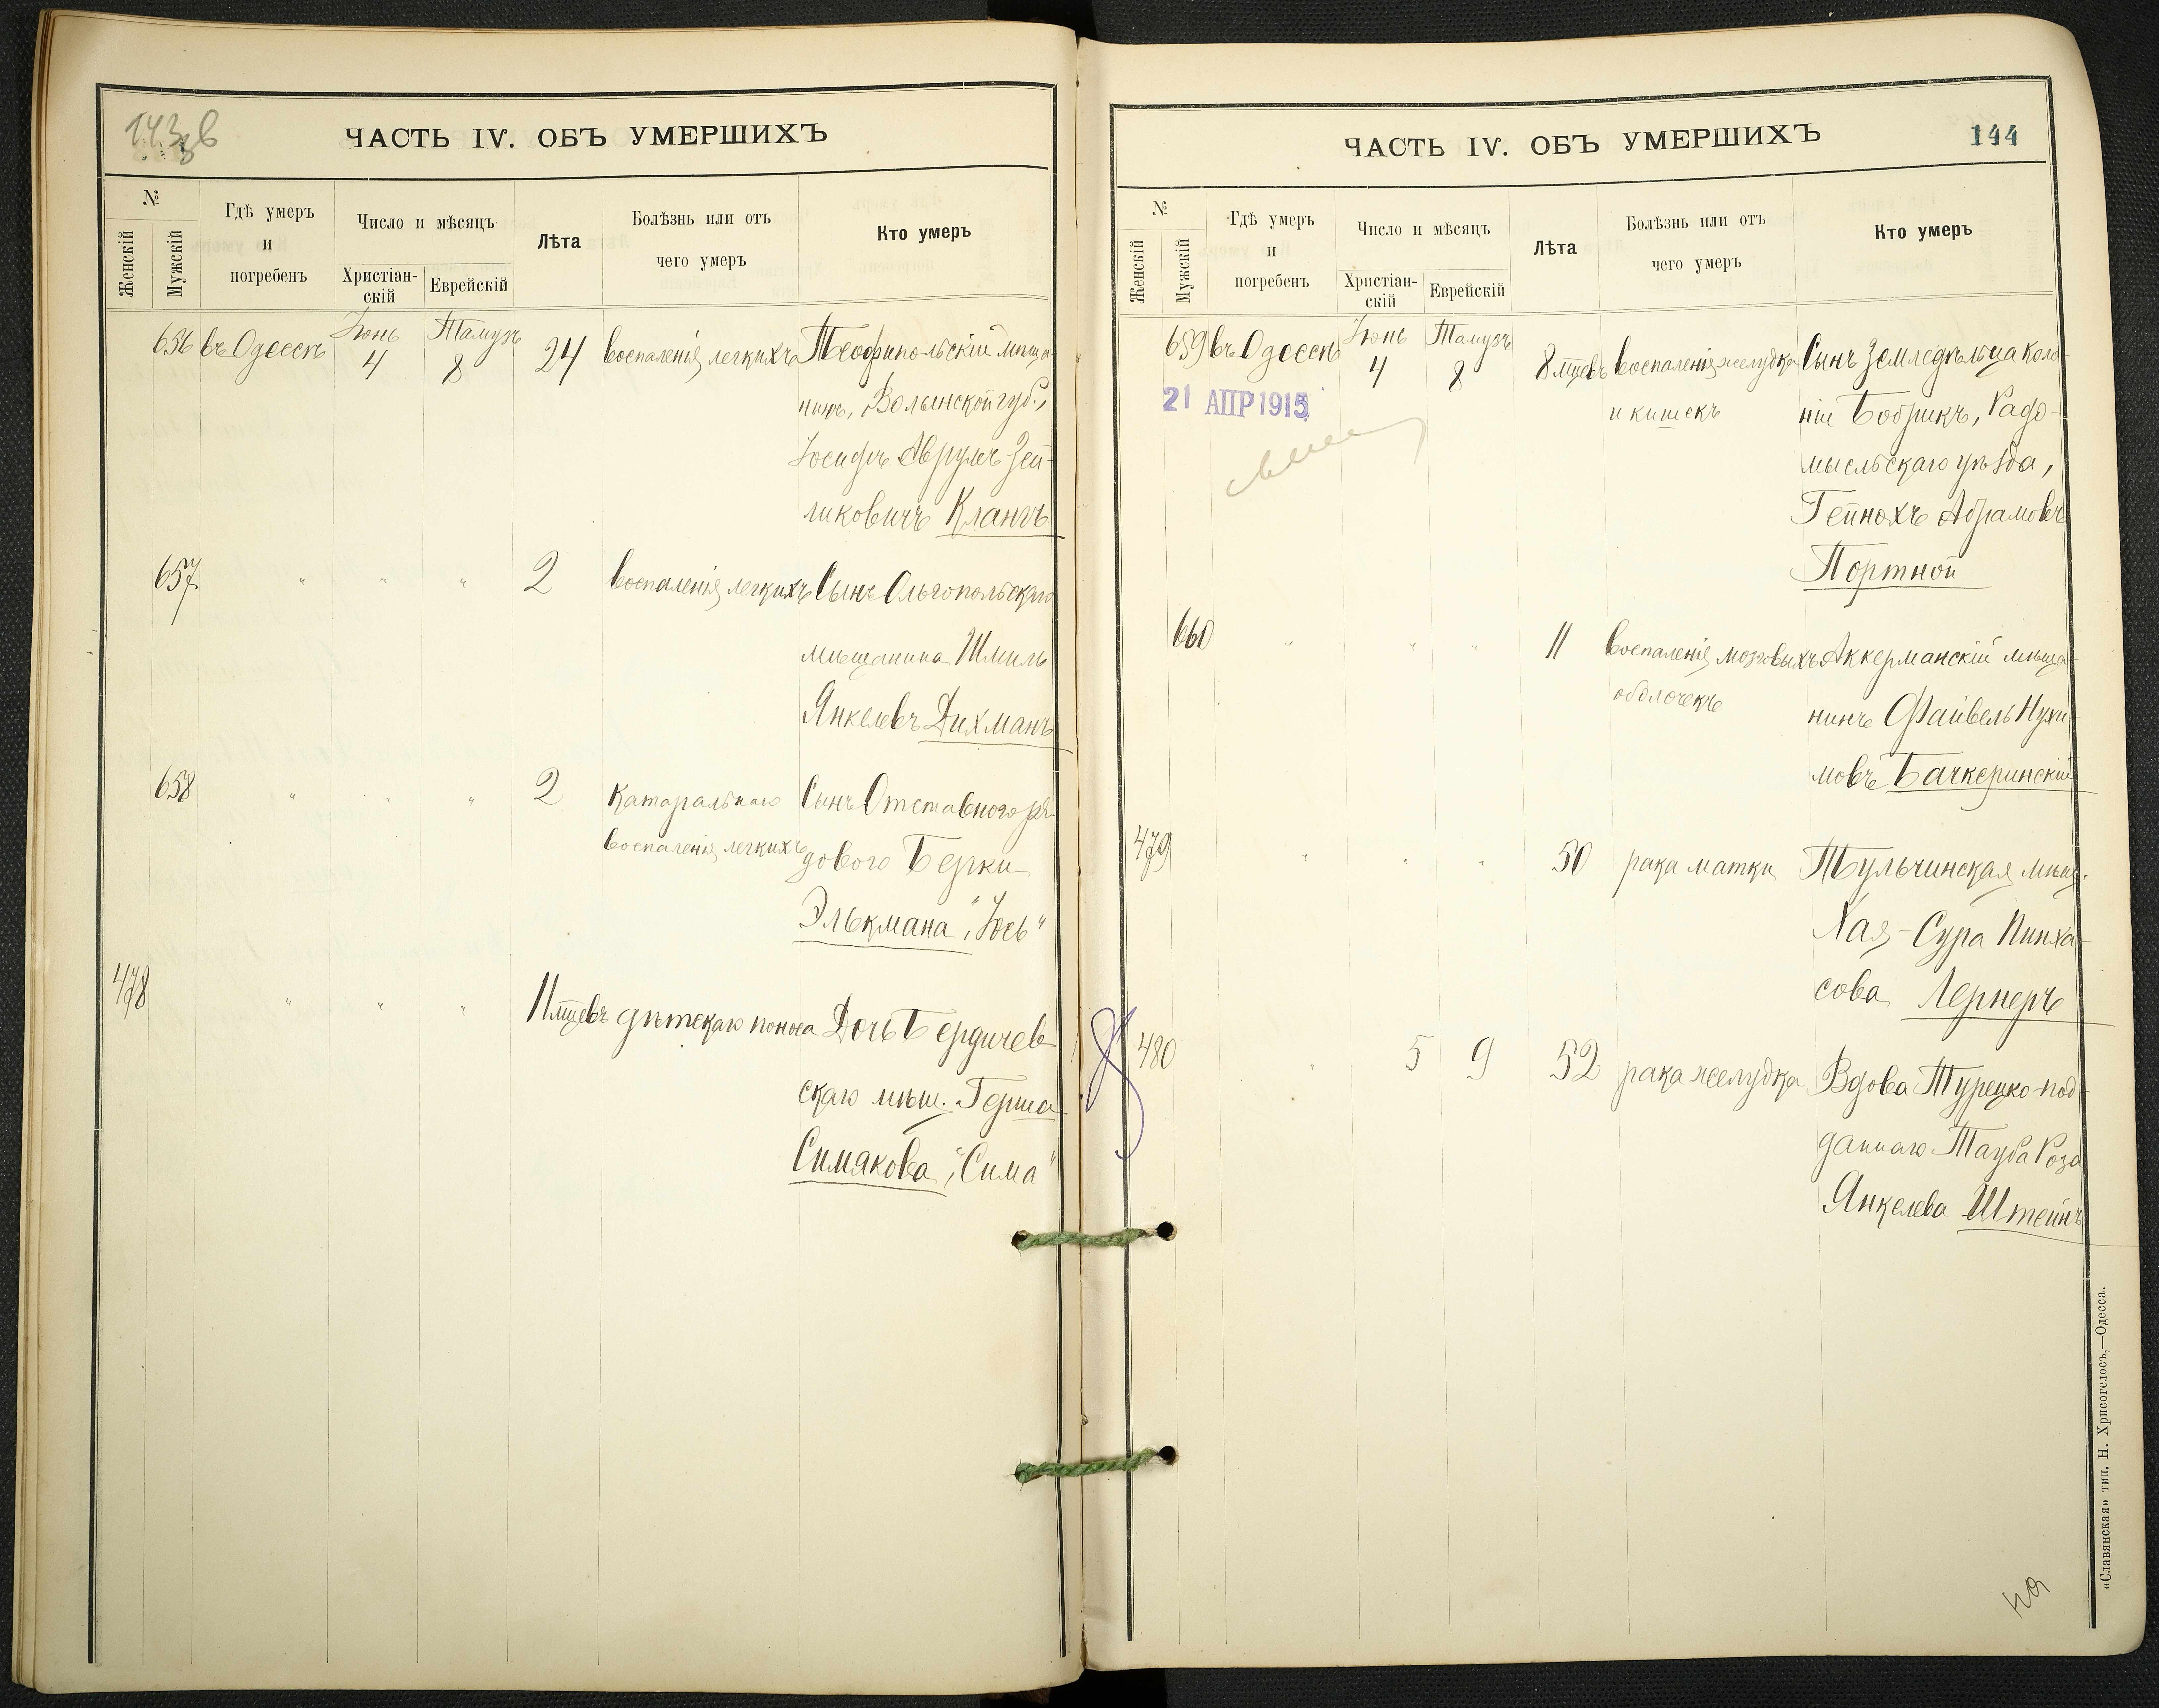 143 зв
ЧАСТЬ IV. ОБЪ УМЕРШИХЪ
№
Женскій
Мужскій
Гдѣ умеръ
и
погребенъ
Число и мѣсяцъ
Христіан-
скій
Еврейскій
Лѣта
Болѣзнь или отъ
чего умеръ
Кто умеръ
656 въ Одессѣ Іюнь 4 Тамузъ 8 24 воспаленія легкихъ Теофипольскій мѣща-
нинъ, Волынской губ.,
Іосифъ Аврумъ Зей-
ликовичъ Клангъ
657 " " " 2 воспаленія легкихъ Сынъ Ольгопольскаго
мѣщанина Шмиль
Янкелевъ Дихманъ
658 " " " 2 катаральнаго Сынъ Отставного ря-
воспаленія легкихъ дового Берки
Элькмана, "Іось"
478 " " " 11 мцевъ дѣтскаго поноса Дочь Бердичев-
скаго мѣщ. Герша
Симакова, "Сима"
ЧАСТЬ IV. ОБЪ УМЕРШИХЪ
144
№
Женскій
Мужскій
Гдѣ умеръ
и
погребенъ
Число и мѣсяцъ
Христіан-
скій
Еврейскій
Лѣта
Болѣзнь или отъ
чего умеръ
Кто умеръ
659 въ Одессѣ Іюнь 4 Тамузъ 8 8 мцевъ воспаленія желудка Сынъ Земледѣльца коло-
21 АПР 1915
и кишекъ ніи Бобрикъ, Радо-
мысльскаго уѣзда,
Гейнохъ Абрамовъ
Портной
660 " " " 11 воспаленія мозговыхъ Аккерманскій мѣща-
оболочекъ нинъ Файвель Нухи-
мовъ Бачкеринскій
479 " " " 50 рака матки Тульчинская мѣщ.
Хая-Сура Пинха-
сова Лернеръ
480 " 5 9 52 рака желудка Вдова Турецко-под-
даннаго Тауба Роза
Янкелева Штейнъ
«Славянская» тип. Н. Хрисогелосъ,—Одесса.